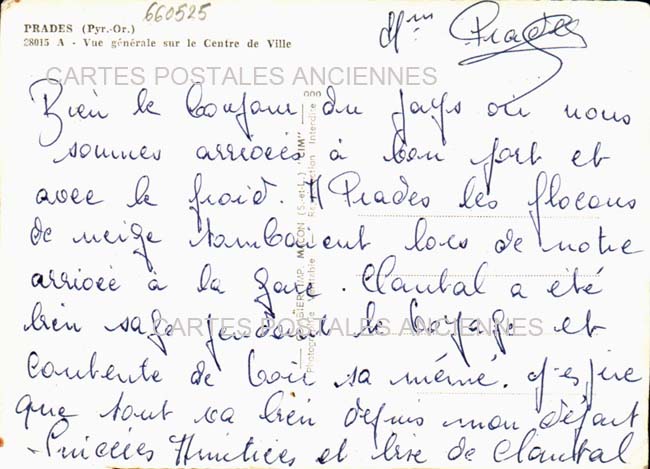 660525
PRADES (Pyr.-Or.)
28015 A - Vue générale sur le Centre de Ville
Mme Prades
CARTES POSTALES ANCIENNES
Bien le bonjour du pays où nous
sommes arrivées à bon port et
avec le froid. A Prades les flocons
de neige tombaient lors de notre
arrivée à la gare. Chantal a été
bien sage pendant le voyage et
CARTES POSTALES ANCIENNES
contente de voir sa mémé. J'espère
que tout va bien depuis mon départ
Sincères Amitiées et bise de Chantal
COMBIER IMP. MACON (S.-et-L.) "CIM"
Reproduction Interdite